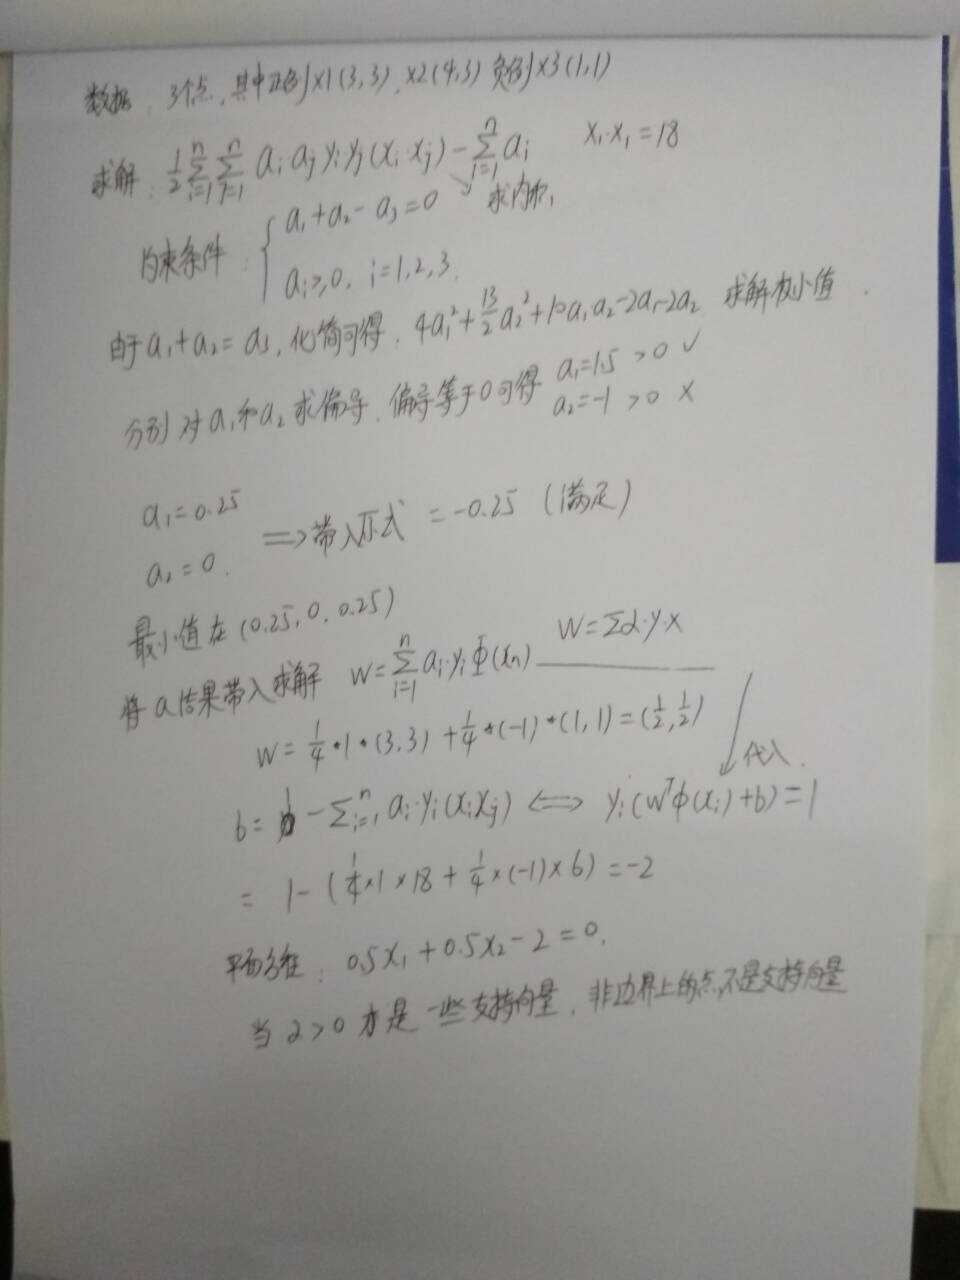 数据:3个点,其中正例x1(3,3),x2(4,3) 负例x3(1,1)
求解:½∑ⁿᵢ₌₁∑ⁿⱼ₌₁ aᵢaⱼyᵢyⱼ(xᵢ·xⱼ)-∑ⁿᵢ₌₁aᵢ x₁·x₁=18
求内积
约束条件:{ a₁+a₂-a₃=0
aᵢ≥0, i=1,2,3.
由于a₁+a₂=a₃,化简可得:4a₁²+13/2a₂²+10a₁a₂-2a₁-2a₂ 求解极小值.
分别对a₁和a₂求偏导,偏导等于0可得 a₁=1.5 >0 ✓
a₂=-1 >0 ×
a₁=0.25
⟹带入原式 =-0.25 (满足)
a₂=0.
最小值在(0.25,0,0.25)
将a结果带入求解 w=∑ⁿᵢ₌₁aᵢ·yᵢΦ(xₙ) W=∑α·y·x
w=¼*1*(3,3)+¼*(-1)*(1,1)=(½,½)
代入.
b= -∑ⁿᵢ₌₁aᵢ·yᵢ(xᵢxⱼ) ⟺ yᵢ(wᵀΦ(xᵢ)+b)=1
= 1-(¼×1×18+¼×(-1)×6)=-2
平面方程:0.5x₁+0.5x₂-2=0.
当α>0才是一些支持向量,非边界上的点,不是支持向量